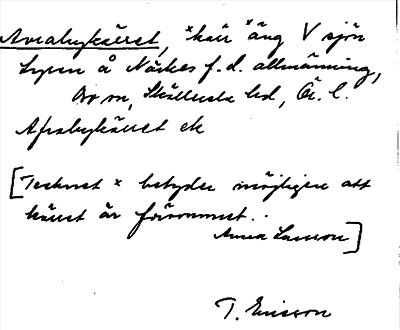 Avrabykäret, ˣkärr ˣäng V sjön
Lysen å Näckes f.d. allmänning,
Bo sn, Skyllersta hd, Ör. l.
Afrabykärret ek
[Tecknet × betyder möjligen att
kärret är försvunnet.
Anna Larsson]
T. Ericsson